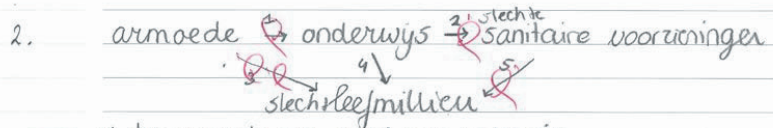 2. armoede 1 onderwijs 2 slechte sanitaire voorzieningen
3 4 5
slecht leefmillieu